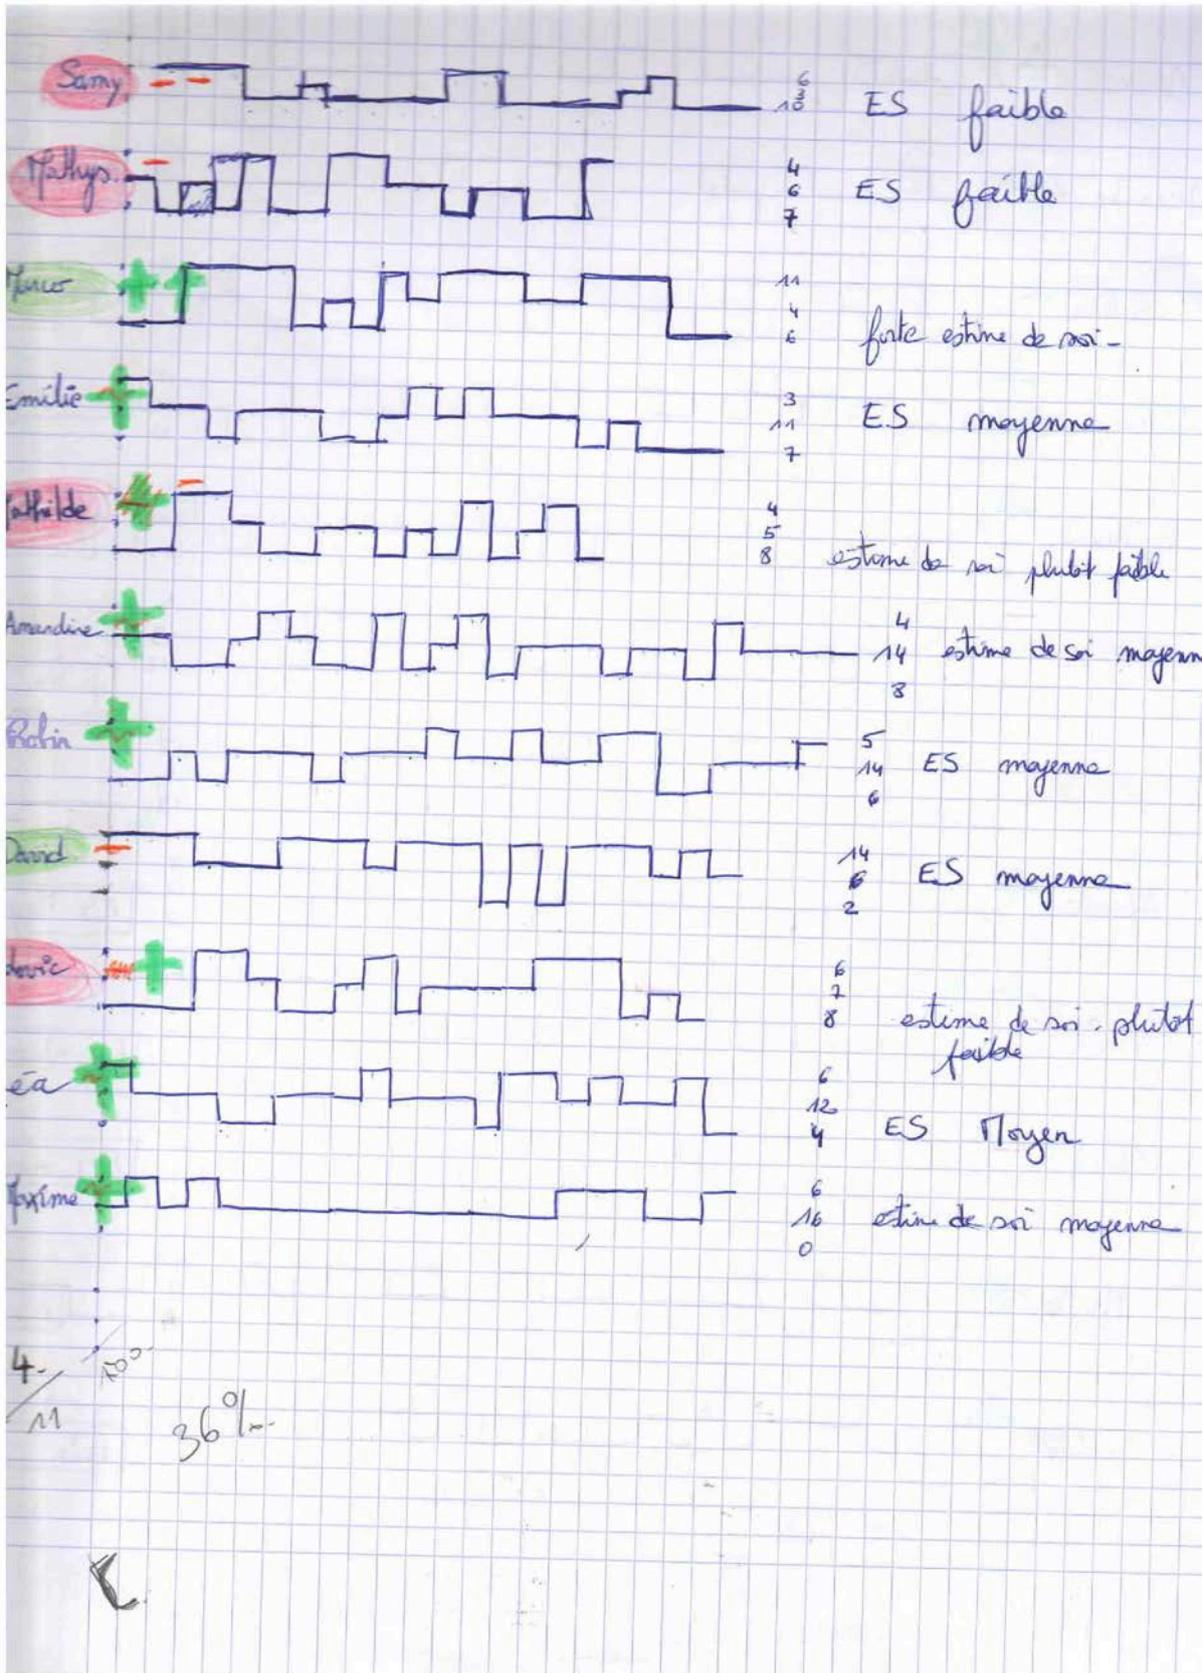 Samy
6
3
10
ES faible
Mathys.
4
6
7
ES faible
Marco
11
4
6
forte estime de soi-
Emilie
3
11
7
ES moyenne
athilde
4
5
8
estime de soi plutôt faible
Amandine
4
14
8
estime de soi moyenn
Robin
5
14
6
ES moyenne
David
14
6
2
ES moyenne
dovic
6
7
8
estime de soi - plutôt
faible
éa
6
12
4
ES Moyen
Maxime
6
16
0
estime de soi moyenne
4
11
100
36%